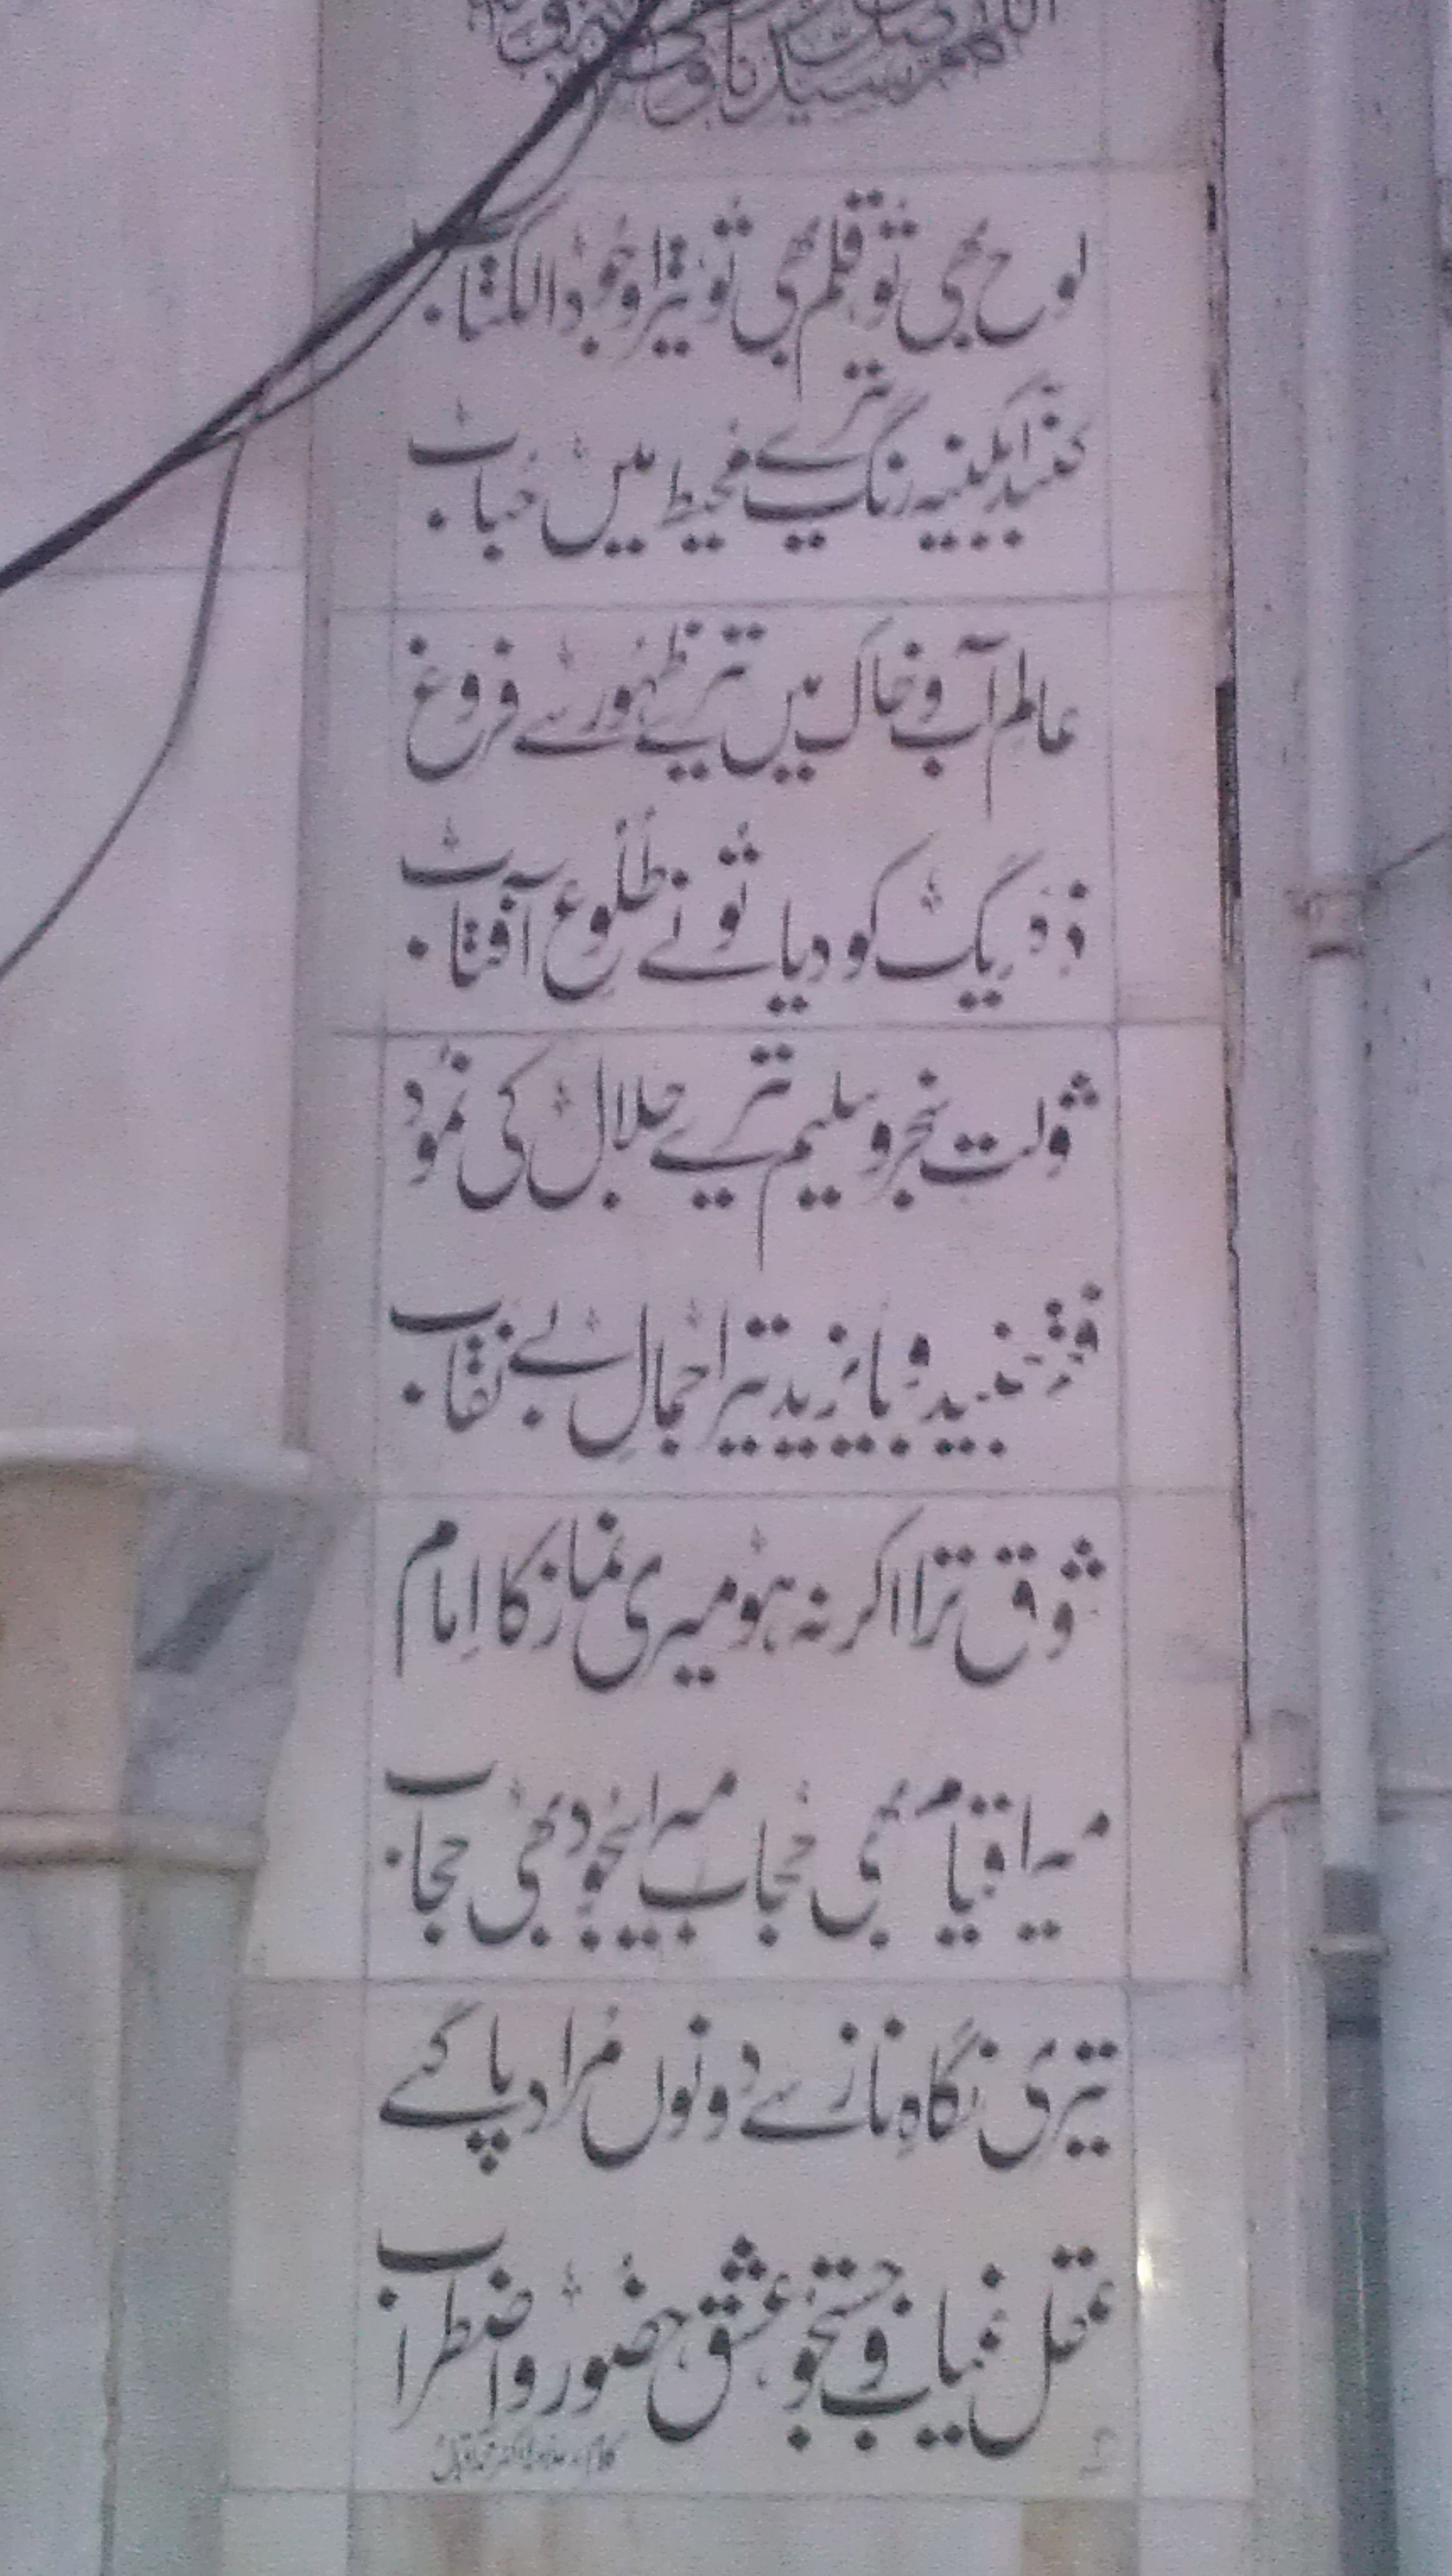 لوح بھی تو قلم بھی تو تیرا وجود الکتاب
گنبد آبگینہ رنگ تیرے محیط میں حباب
عالم آب و خاک میں تیرے ظہور سے فروغ
ذرہ ریگ کو دیا تو نے طلوع آفتاب
شوکت سنجر و سلیم تیرے جلال کی نمود
فقر جنید و بایزید تیرا جمال بے نقاب
شوق ترا اگر نہ ہو میری نماز کا امام
میرا قیام بھی حجاب میرا سجود بھی حجاب
تیری نگاہ ناز سے دونوں مراد پا گئے
عقل غیاب و جستجو، عشق حضور و اضطراب